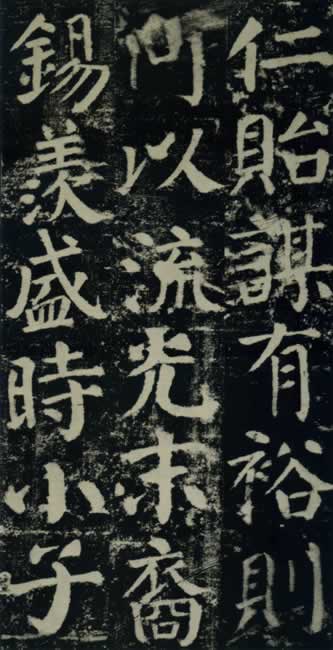 仁貽謀有裕則
何以流光末裔
錫羨盛時小子